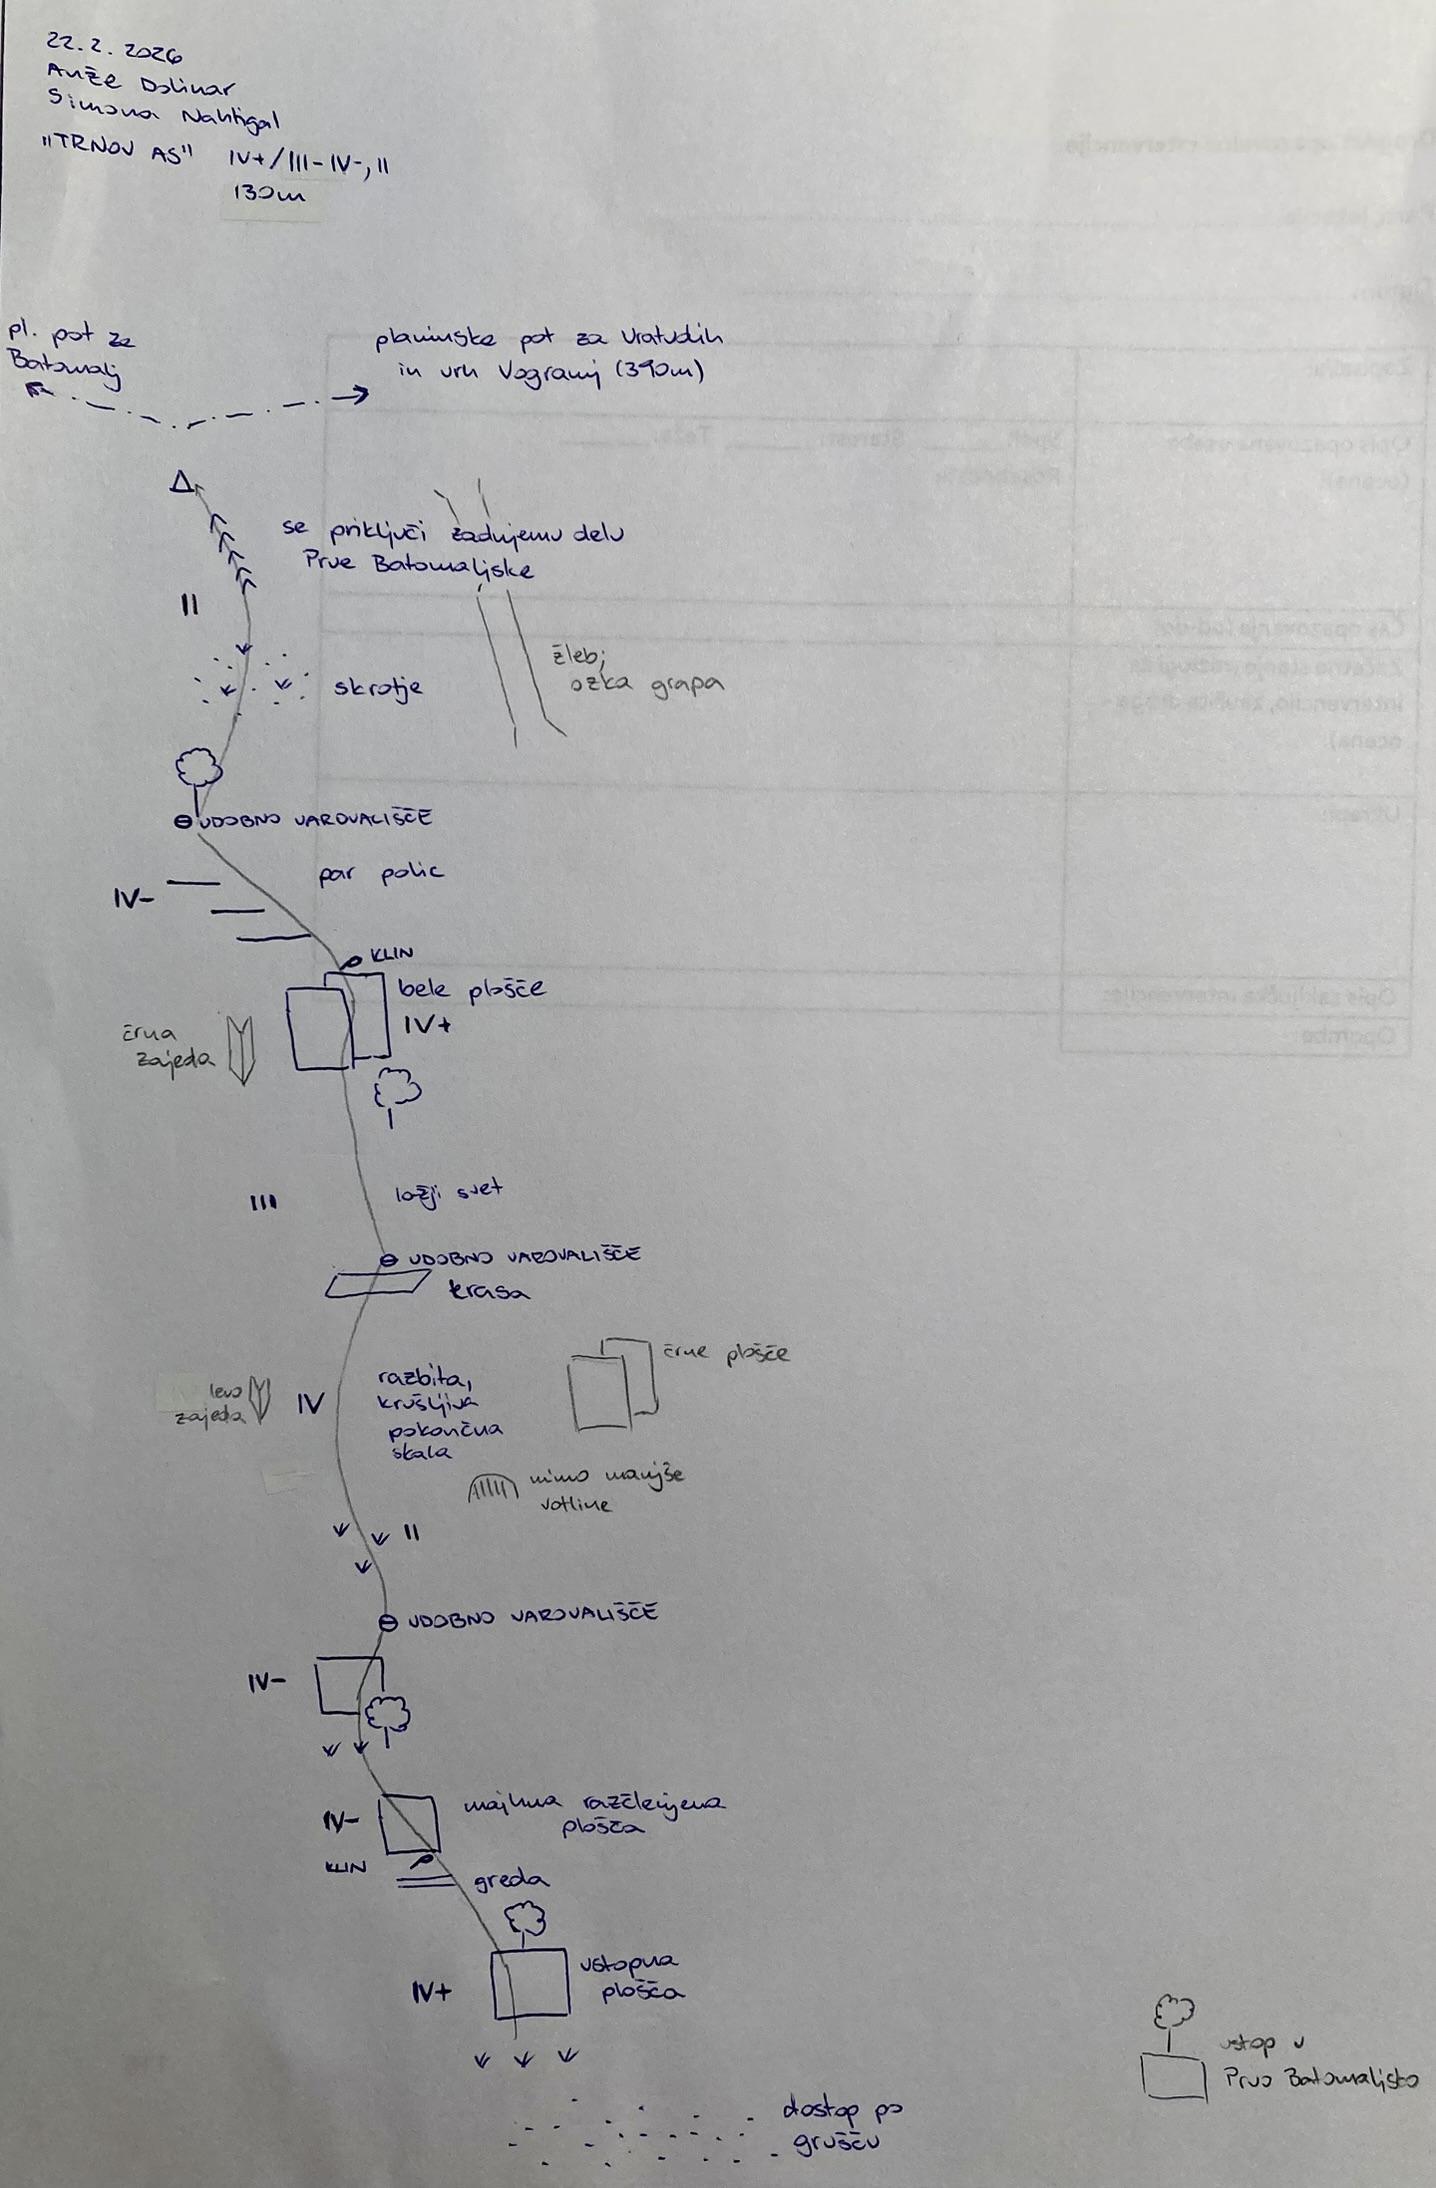 22.2.2026
Anže Dolinar
Simona Nahtigal
"TRNOV AS" IV+/III-IV-, II
130m
pl. pot za
Batomalj
planinska pot za Vratudih
in vrh Vogranj (390m)
se priključi zadnjemu delu
Prve Batomaljske
II
žleb;
ozka grapa
skrotje
UDOBNO VAROVALIŠČE
par polic
IV-
KLIN
bele plošče
IV+
črna
zajeda
III
lažji svet
UDOBNO VAROVALIŠČE
krasa
črne plošče
levo
zajeda
IV
razbita,
krušljiva
pokončna
skala
mimo manjše
votline
II
UDOBNO VAROVALIŠČE
IV-
IV-
majhna razčlenjena
plošča
KLIN
greda
IV+
vstopna
plošča
vstop v
Prvo Batomaljsko
dostop po
grušču